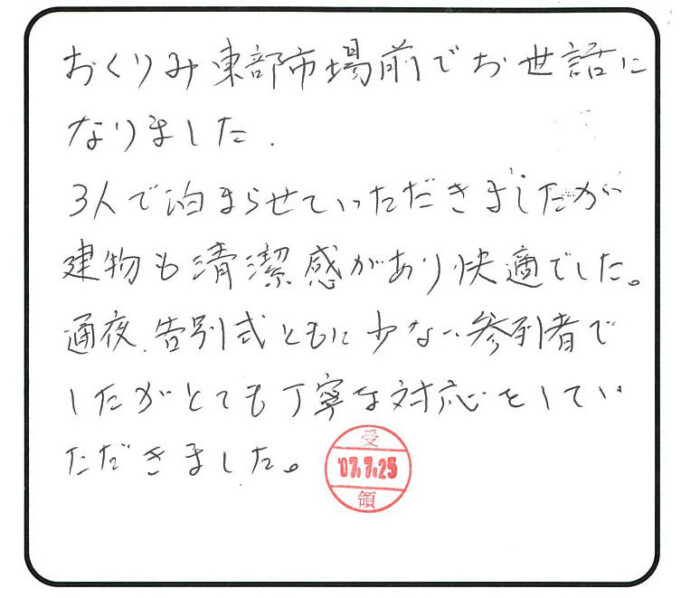 おくりみ東部市場前でお世話に
なりました.
3人で泊まらせていただきましたが
建物も清潔感があり快適でした。
通夜、告別式ともに少ない参列者で
したがとても丁寧な対応をしてい
ただきました。
受
'07.7.25
領